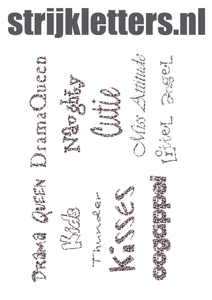 strijkletters.nl
DramaQueen
Naughty
Cutie
Miss Attitude
Little angel
DRAMA QUEEN
Kids
Thunder
Kisses
oogappel